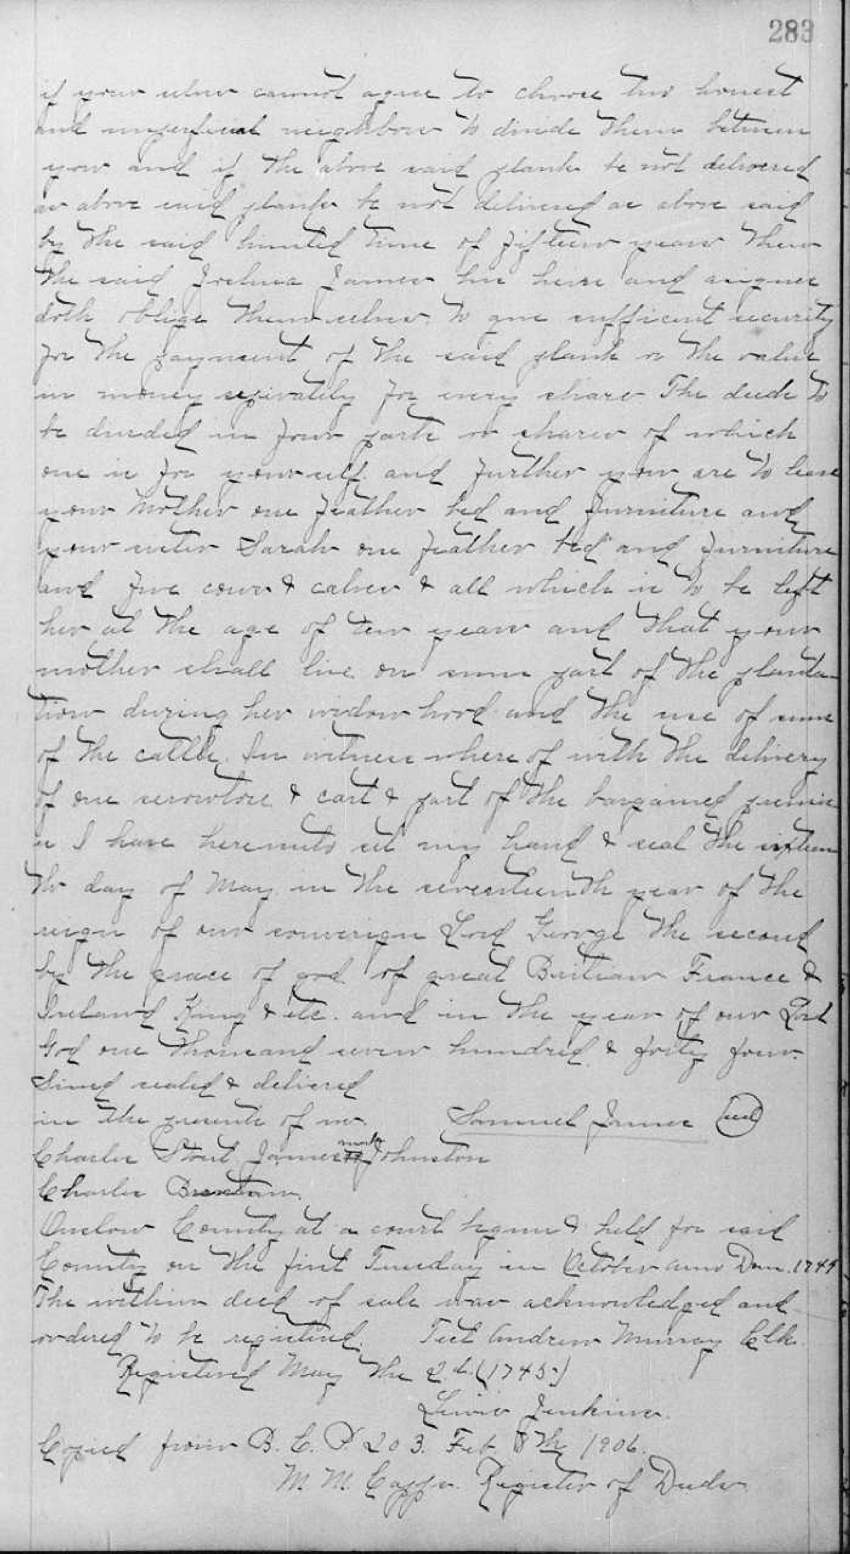 283
if your selves cannot agree to choose two honest
and unperficial neighbours to divide them between
your and if the above said planks be not delivered
as above said planks be not delivered as above said
by the said limited time of fifteen years then
the said Joshua James his heirs and asignes
doth oblige themselves to give sufficient security
for the payment of the said plank or the value
in money seperately for every share The deeds to
be divided in four parts or shares of which
one is for yourself and further you are to leave
your mother one feather bed and furniture and
your sister Sarah one feather bed and furniture
and five cows & calves & all which is to be left
her at the age of ten years and that your
mother shall live on some part of the planta
tion during her widow hood and the use of some
of the cattle. In witness where of with the delivery
of one & cart & part of the bargained premis
es I have hereunto set my hand & seal the
th day of May in the seventeenth year of the
reign of our sovereign Lord George the second
by the grace of god of great Britian France &
Ireland King & etc. and in the year of our Lord
God one thousand seven hundred & forty four.
Sined sealed & delivered
in the presents of us. Samuel James (seal)
Charles Stout James mark Johnston
Charles
Onslow County at a court begun & held for said
County on the first Tuesday in October anno Dom. 1744
The within deed of sale was acknowledged and
ordered to be registered. Test Andrew Murray Clk.
Registered May the 2d. (1745)
Lewis Jenkins.
Copied from B. C. P. 203. Feb. 8th 1906.
M. M. Capps. Register of Deeds